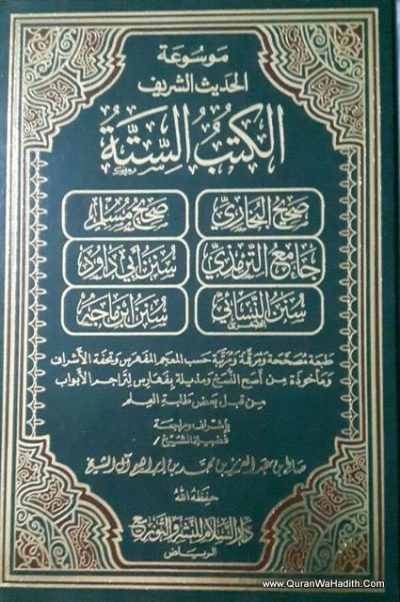 موسوعة
الحديث الشريف
الكتب الستة
صحيح البخاري صحيح مسلم
جامع الترمذي سنن أبي داود
سنن النسائي سنن ابن ماجه
طبعة مصححة ومرقمة ومرتبة حسب المعجم المفهرس وتحفة الأشراف
ومأخوذة من أصح النسخ ومذيلة بفهارس لتراجم الأبواب
من قبل بعض طلبة العلم
بإشراف ومراجعة
فضيلة الشيخ /
صالح بن عبد العزيز بن محمد بن إبراهيم آل الشيخ
حفظه الله
دار السلام للنشر والتوزيع
الرياض
www.QuranWaHadith.Com